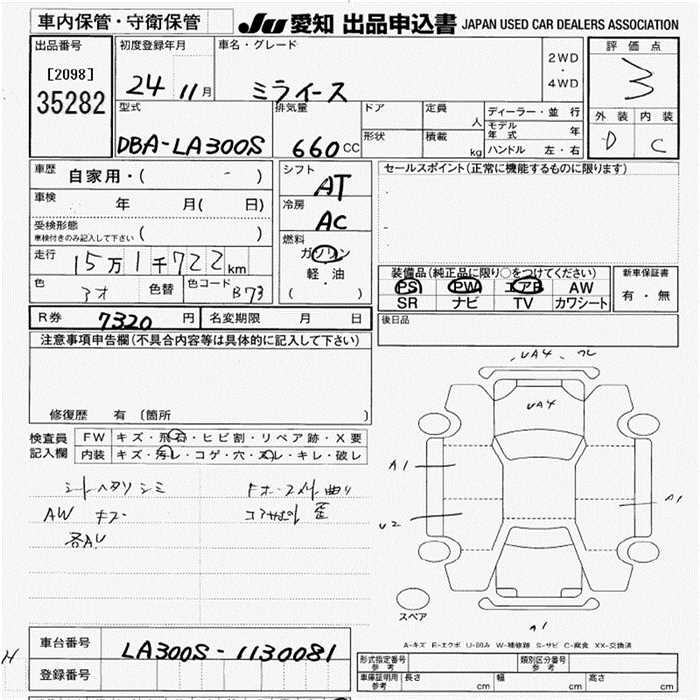 車内保管・守衛保管
JU 愛知 出品申込書 JAPAN USED CAR DEALERS ASSOCIATION
出品番号
[2098]
35282
初度登録年月
24 11月
車名・グレード
ミライース
2WD
・
4WD
評価点
3
外装 内装
D C
型式
DBA-LA300S
排気量
660cc
ドア
形状
定員
人
積載
kg
ディーラー・並行
モデル年式 年
ハンドル 左・右
車歴
自家用・( - )
車検
年 月( 日)
受検形態
車検付きのみ記入して下さい ( )
走行
15万1千722km
色
アオ
色替
色コード
B73
シフト
AT
冷房
AC
燃料
ガソリン
軽・油
( )
セールスポイント(正常に機能するものに限ります)
装備品(純正品に限り○をつけてください)
PS PW エアB AW
SR ナビ TV カワシート
新車保証書
有・無
後日品
R券 7320 円
名変期限 月 日
注意事項申告欄(不具合内容等は具体的に記入して下さい)
修復歴 有 (箇所 )
検査員
記入欄
FW キズ・飛石・ヒビ割・リペア跡・X要
内装 キズ・汚レ・コゲ・穴・スレ・キレ・破レ
シートヘタリ シミ
AW キズ
各AU
コアサポート 歪
UA4
UA4
A1
A1
U2
A1
スペア
A-キズ E-エクボ U-凹み W-補修跡 S-サビ C-腐食 XX-交換済
車台番号
LA300S-1130081
登録番号
形式指定番号
参考
類別区分番号
参考
車庫証明用
参考
長さ cm 幅 cm 高さ cm